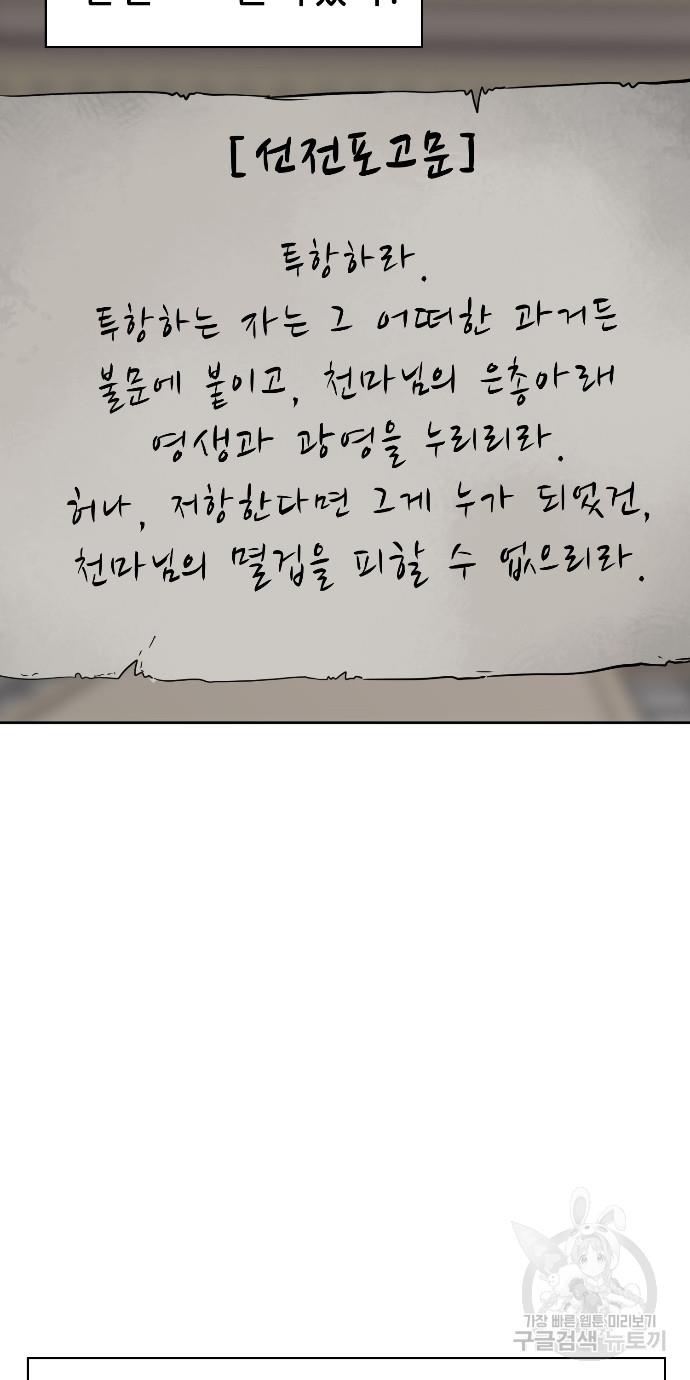 [선전포고문]
투항하라.
투항하는 자는 그 어떠한 과거든
불문에 붙이고, 천마님의 은총아래
영생과 광영을 누리리라.
허나, 저항한다면 그게 누가 되었건,
천마님의 멸겁을 피할 수 없으리라.
가장 빠른 웹툰 미리보기
구글검색 뉴토끼